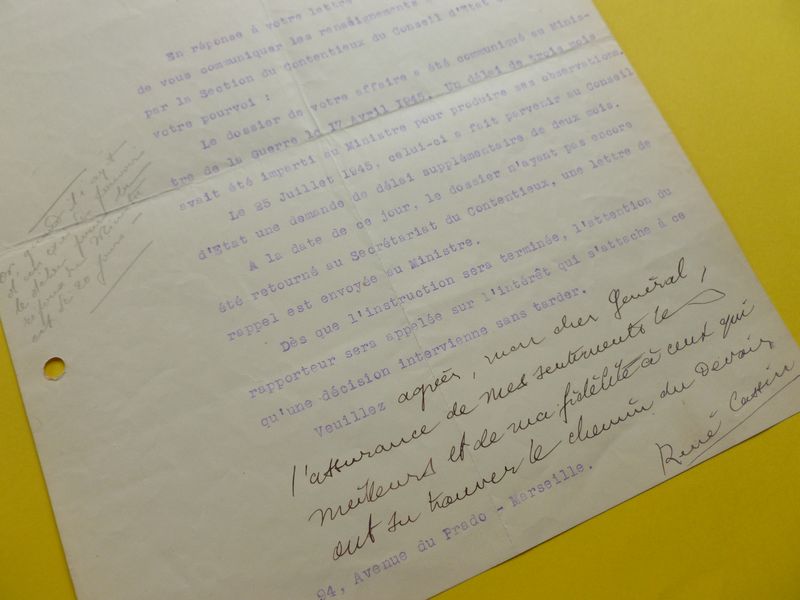 En réponse à votre lettre
de vous communiquer les renseignements
par la Section du Contentieux du Conseil d'Etat
votre pourvoi :
Le dossier de votre affaire a été communiqué au Minis-
tre de la Guerre le 17 Avril 1945. Un délai de trois mois
avait été imparti au Ministre pour produire ses observations.
Le 25 Juillet 1945, celui-ci a fait parvenir au Conseil
d'Etat une demande de délai supplémentaire de deux mois.
A la date de ce jour, le dossier n'ayant pas encore
été retourné au Secrétariat du Contentieux, une lettre de
rappel est envoyée au Ministre.
Dès que l'instruction sera terminée, l'attention du
rapporteur sera appelée sur l'intérêt qui s'attache à ce
qu'une décision intervienne sans tarder.
Veuillez agréer, mon cher Général,
l'assurance de mes sentiments les
meilleurs et de ma fidélité à ceux qui
ont su trouver le chemin du Devoir
René Cassin
94, Avenue du Prado - Marseille.
le délai pour
est de 20 jours